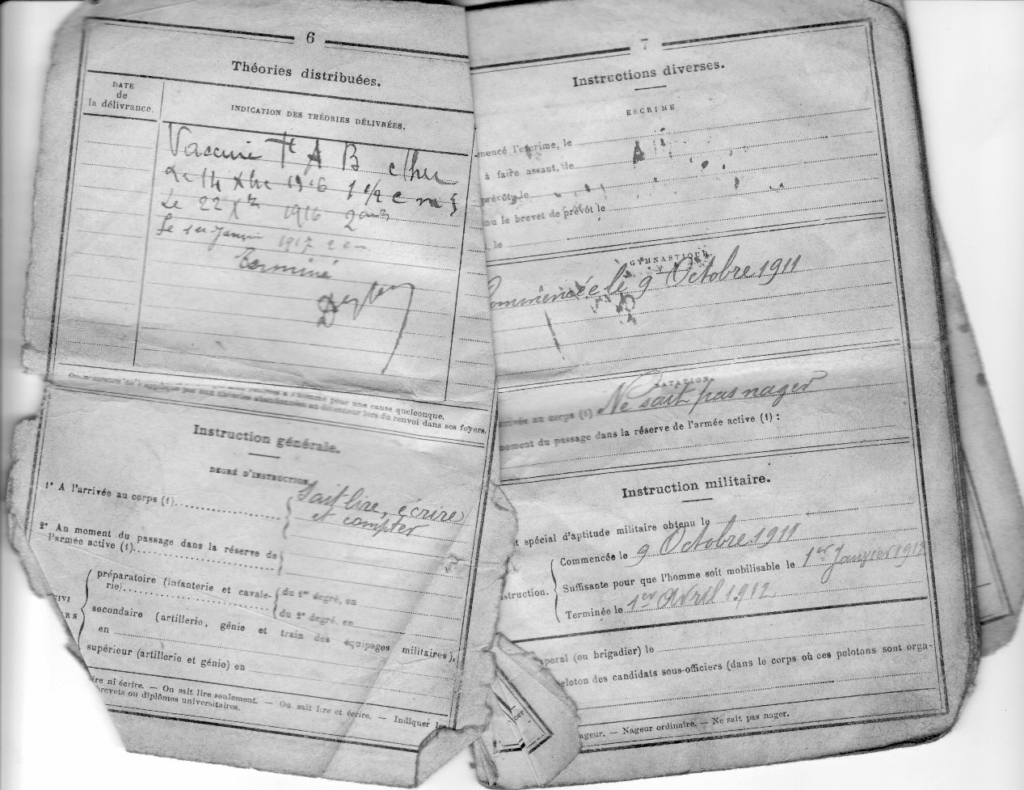 6
Théories distribuées.
DATE
de
la délivrance.
INDICATION DES THÉORIES DÉLIVRÉES.
Vaccine T A B ether
Le 14 Xbre 1916 1 1/2 c m3
Le 22 Xbre 1916
Le 1er Janvier 1917
terminé
pour une cause quelconque.
lors du renvoi dans ses foyers.
Instruction générale.
DEGRÉ D'INSTRUCTION
1° A l'arrivée au corps (1)
Sait lire, écrire
et compter
2° Au moment du passage dans la réserve de
l'armée active (1)
préparatoire (infanterie et cavale-
rie)
du 1er degré, en
du 2e degré, en
secondaire (artillerie, génie et train des équipages militaires),
en
supérieur (artillerie et génie) en
ire ni écrire. — Ou sait lire seulement. — Ou sait lire et écrire. — Indiquer les
brevets ou diplômes universitaires.
7
Instructions diverses.
ESCRIME
mencé l'escrime, le
à faire assaut, le
prévôt, le
nu le brevet de prévôt le
le
GYMNASTIQUE
Commencée le 9 Octobre 1911
NATATION
arrivée au corps (1) Ne sait pas nager
moment du passage dans la réserve de l'armée active (1) :
Instruction militaire.
t spécial d'aptitude militaire obtenu le
struction.
Commencée le 9 Octobre 1911
Suffisante pour que l'homme soit mobilisable le 1er Janvier 1912
Terminée le 1er Avril 1912
poral (ou brigadier) le
eloton des candidats sous-officiers (dans le corps où ces pelotons sont orga-
ageur. — Nageur ordinaire. — Ne sait pas nager.